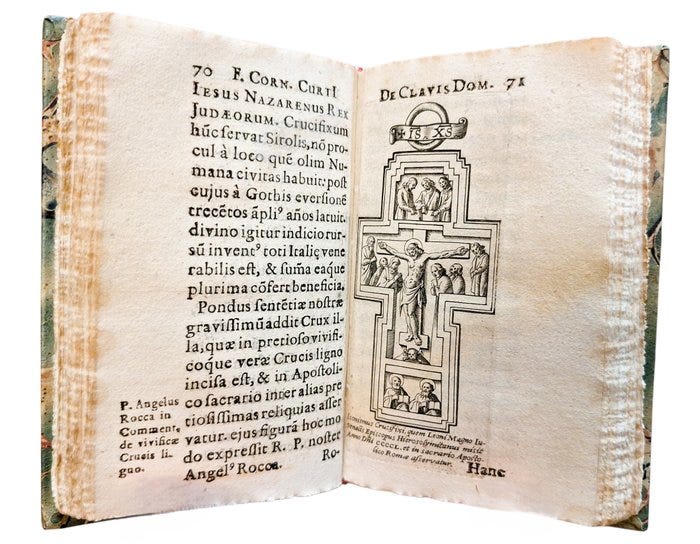 70 F. CORN. CURTI
IESUS NAZARENUS REX
JUDÆORUM. Crucifixum
hũc servat Sirolis, nõ pro-
cul à loco quẽ olim Nu-
mana civitas habuit: post
cujus à Gothis eversionẽ
trecẽtos ãpliꝰ años latuit.
divino igitur indicio rur-
sũ inventꝰ toti Italię vene
rabilis est, & sum̃a eaque
plurima cõfert beneficia.
Pondus sentẽtiæ nostræ
gravissimũ addit Crux il-
la, quæ in pretioso vivifi-
coque veræ Crucis ligno
incisa est, & in Apostoli-
co sacrario inter alias pre
tiosissimas reliquias asser
vatur. ejus figurã hoc mo
do expressit R. P. noster
Angelꝰ Rocca. Ro-
P. Angelus
Rocca in
Comment.
de vivificæ
Crucis li-
guo.
DE CLAVIS DOM. 71
IS. XS
Iconismus Crucifixi, quem Leoni Magno Iu-
venalis Episcopus Hierosolymitanus misit
Anno Dñi CCCCL. et in sacrario Aposto-
lico Romæ asservatur.
Hanc